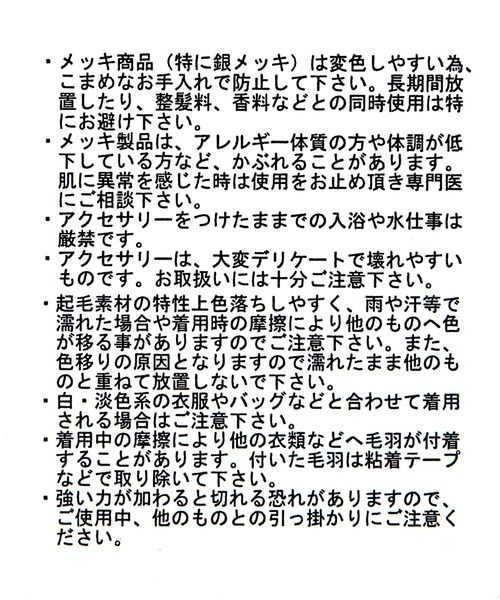 ・メッキ商品（特に銀メッキ）は変色しやすい為、
こまめなお手入れで防止して下さい。長期間放
置したり、整髪料、香料などとの同時使用は特
にお避け下さい。
・メッキ製品は、アレルギー体質の方や体調が低
下している方など、かぶれることがあります。
肌に異常を感じた時は使用をお止め頂き専門医
にご相談下さい。
・アクセサリーをつけたままでの入浴や水仕事は
厳禁です。
・アクセサリーは、大変デリケートで壊れやすい
ものです。お取扱いには十分ご注意下さい。
・起毛素材の特性上色落ちしやすく、雨や汗等で
濡れた場合や着用時の摩擦により他のものへ色
が移る事がありますのでご注意下さい。また、
色移りの原因となりますので濡れたまま他のも
のと重ねて放置しないで下さい。
・白・淡色系の衣服やバッグなどと合わせて着用
される場合はご注意下さい。
・着用中の摩擦により他の衣類などへ毛羽が付着
することがあります。付いた毛羽は粘着テープ
などで取り除いて下さい。
・強い力が加わると切れる恐れがありますので、
ご使用中、他のものとの引っ掛かりにご注意く
ださい。